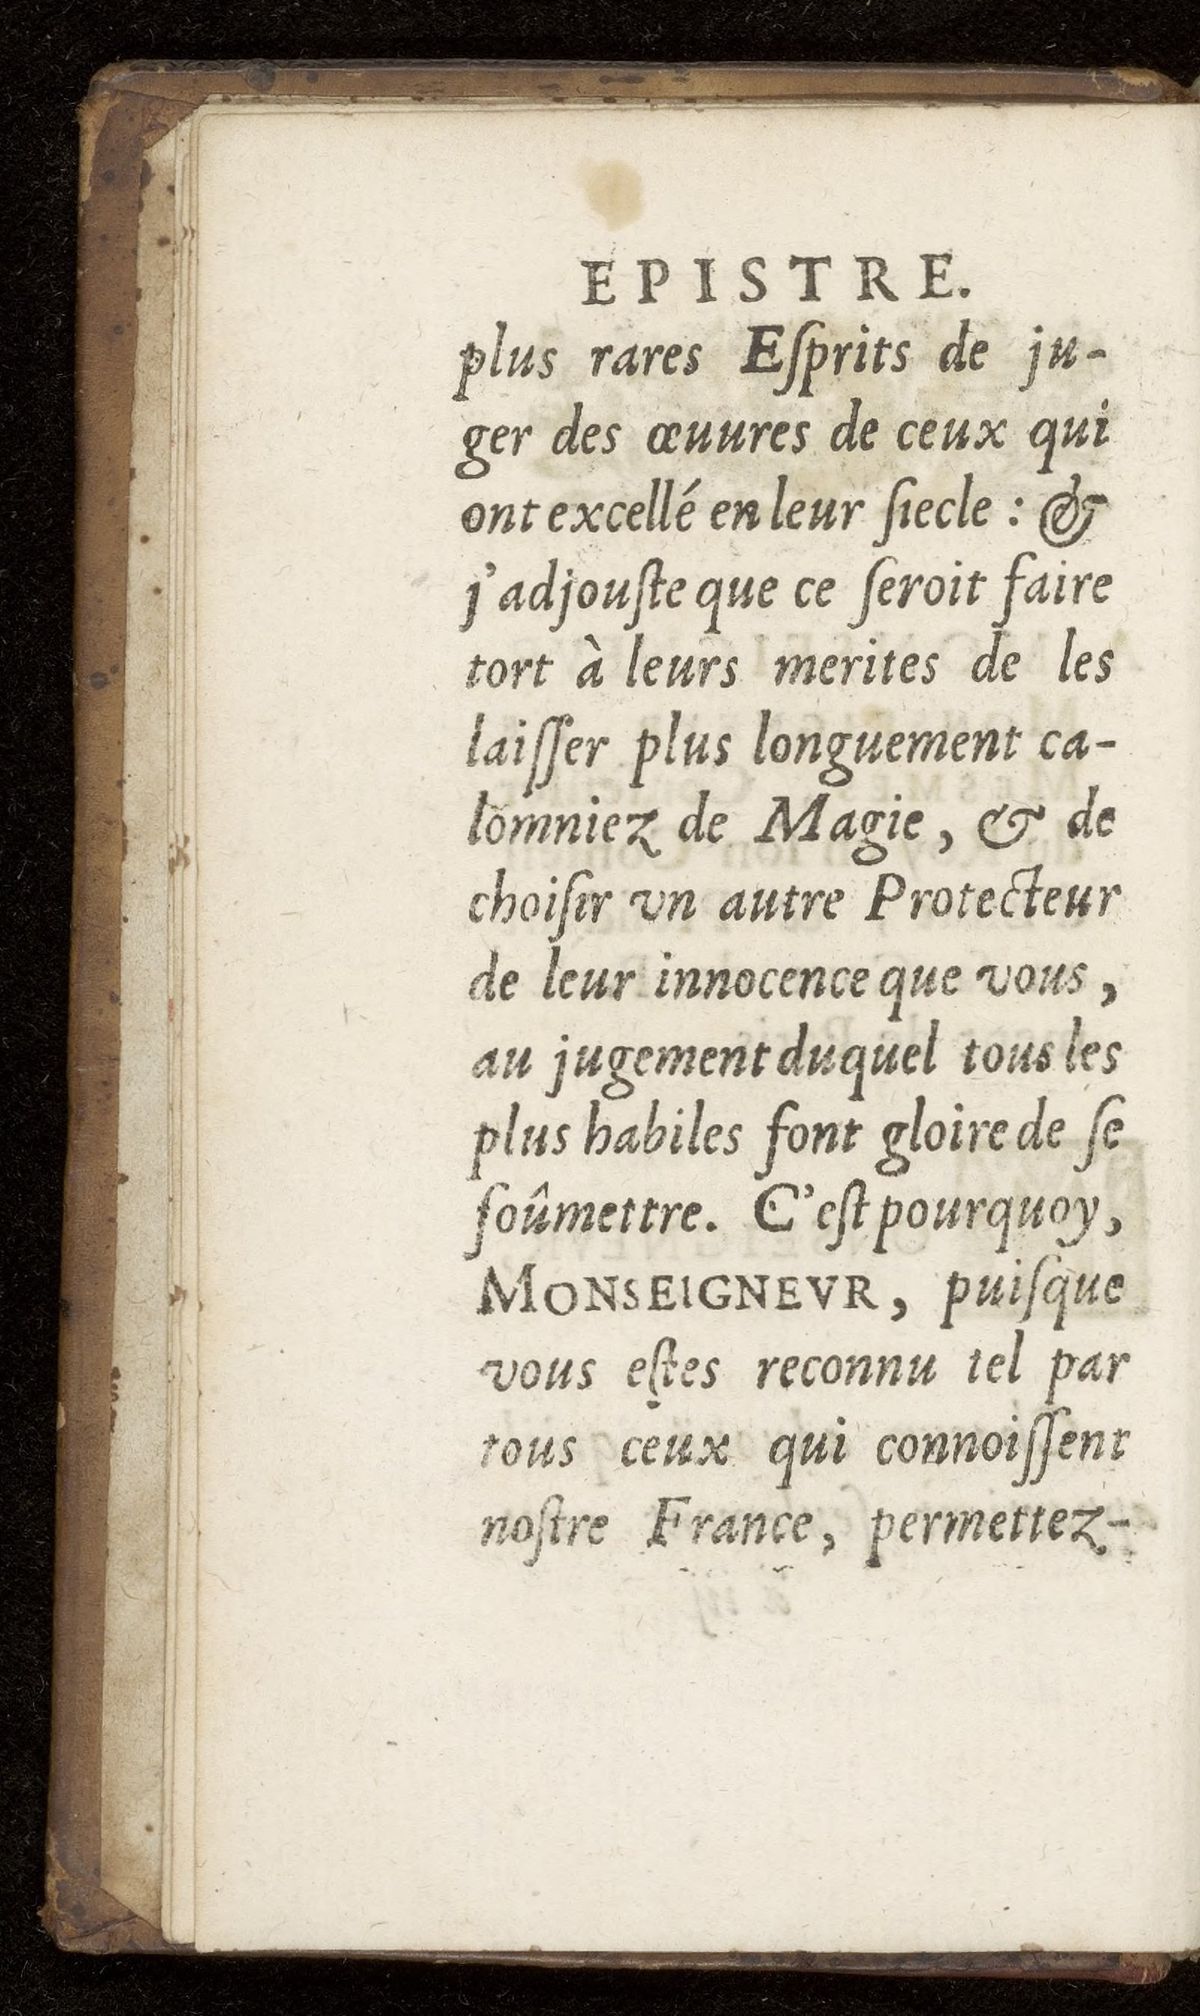 EPISTRE.
plus rares Eſprits de ju-
ger des œuures de ceux qui
ont excellé en leur ſiecle : &
j'adjouſte que ce ſeroit faire
tort à leurs merites de les
laiſſer plus longuement ca-
lomniez de Magie, & de
choiſir vn autre Protecteur
de leur innocence que vous,
au jugement duquel tous les
plus habiles font gloire de ſe
ſoûmettre. C'eſt pourquoy,
MONSEIGNEVR, puiſque
vous eſtes reconnu tel par
tous ceux qui connoiſſent
noſtre France, permettez-